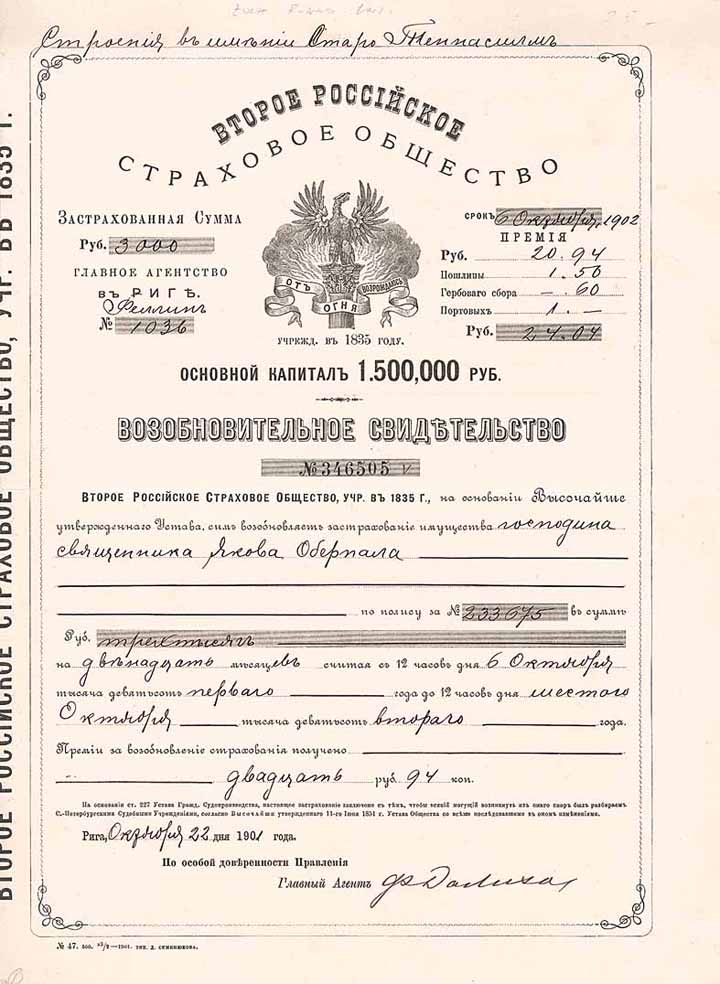 Строенія въ имѣніи Старо Теннасилмъ
ВТОРОЕ РОССІЙСКОЕ
СТРАХОВОЕ ОБЩЕСТВО
ЗАСТРАХОВАННАЯ СУММА
Руб. 3000
ГЛАВНОЕ АГЕНТСТВО
ВЪ РИГѢ.
Феллинъ
№ 1036
ОТЪ ОГНЯ ВОЗРОЖДАЮСЬ
УЧРЕЖД. ВЪ 1835 ГОДУ.
СРОКЪ 6 Октября, 1902
ПРЕМІЯ
Руб. 20.94
Пошлины 1.50
Гербоваго сбора —. 60
Портовыхъ 1.—
Руб. 24.04
ОСНОВНОЙ КАПИТАЛЪ 1.500,000 РУБ.
ВОЗОБНОВИТЕЛЬНОЕ СВИДѢТЕЛЬСТВО
№346505
ВТОРОЕ РОССІЙСКОЕ СТРАХОВОЕ ОБЩЕСТВО, УЧР. ВЪ 1835 Г., на основаніи Высочайше
утвержденнаго Устава, симъ возобновляетъ застрахованіе имущества господина
священника Якова Оберпала
по полису за № 233675 въ суммѣ
Руб. трехъ тысячъ
на двѣнадцать мѣсяцевъ считая съ 12 часовъ дня 6 Октября
тысяча девятьсотъ перваго года до 12 часовъ дня шестого
Октября тысяча девятьсотъ второго года.
Преміи за возобновленіе страхованія получено
двадцать руб. 94 коп.
На основаніи ст. 227 Устава Гражд. Судопроизводства, настоящее застрахованіе заключено съ тѣмъ, чтобы всякій могущій возникнуть изъ онаго споръ былъ разбираемъ
С.-Петербургскими Судебными Учрежденіями, согласно Высочайше утвержденнаго 11-го Іюня 1851 г. Устава Общества со всѣми послѣдовавшими въ ономъ измѣненіями.
Рига, Октября 22 дня 1901 года.
По особой довѣренности Правленія
Главный Агентъ
№ 47. 500. —1901. ТИП. Д. СЕМЕНЮКОВА.
ВТОРОЕ РОССІЙСКОЕ СТРАХОВОЕ ОБЩЕСТВО, УЧР. ВЪ 1835 Г.